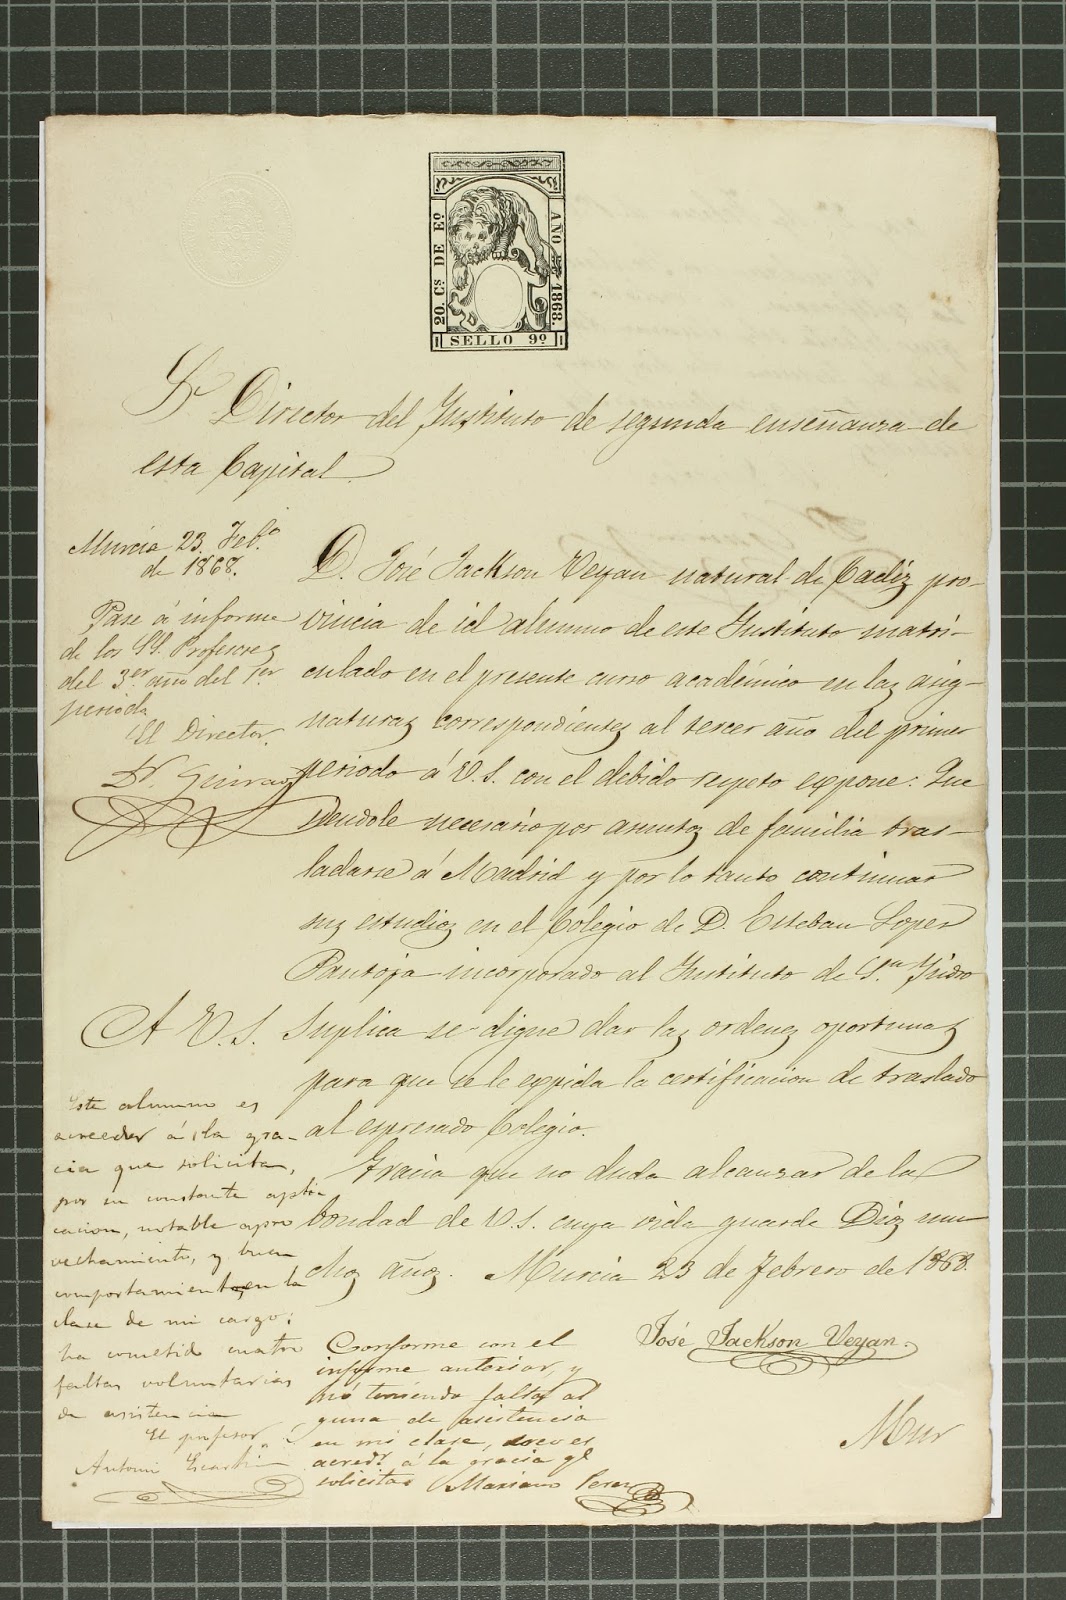 20. Cs DE Eo
AÑO 1868.
SELLO 9º
Sr Director del Instituto de segunda enseñanza de
esta Capital.
Murcia 23 Feb.o
de 1868.
Pase á informe
de los SS. Profesores
del 3.er año del 1er
periodo
El Director.
Dr. Guirao
D. José Jackson Veyan natural de Cadiz pro-
vincia de id alumno de este Instituto matri-
culado en el presente curso académico en las asig-
naturas correspondientes al tercer año del primer
periodo á V.S. con el debido respeto expone: Que
siendole necesario por asuntos de familia tras-
ladarse á Madrid y por lo tanto continuar
sus estudios en el Colegio de D. Esteban Lopez
Pantoja incorporado al Instituto de Sn Ysidro
A V.S. Suplica se digne dar las ordenes oportunas
para que se le expida la certificacion de traslado
al espresado Colegio.
Gracia que no duda alcanzar de la
bondad de V.S. cuya vida guarde Dios mu-
chos años. Murcia 23 de Febrero de 1868.
José Jackson Veyan.
Este alumno es
acreedor á la gra-
cia que solicita,
por su constante apli
cacion, notable apro
vechamiento, y buen
comportamiento en la
clase de mi cargo;
ha cometido cuatro
faltas voluntarias
de asistencia
El profesor
Antonio
Conforme con el
informe anterior, y
no teniendo falta al
guna de asistencia
en mi clase, lo creo es
acredr á la gracia qe
solicita Mariano Perez
Mur